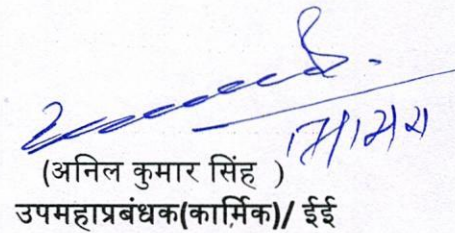 (अनिल कुमार सिंह )
उपमहाप्रबंधक(कार्मिक)/ ईई